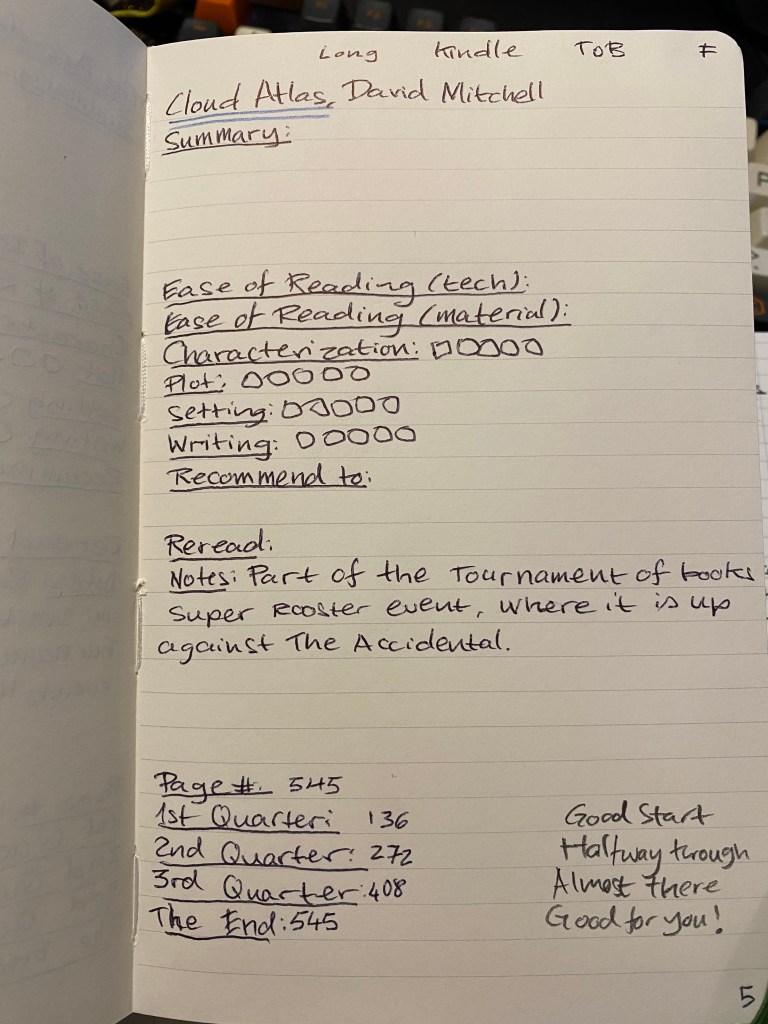 Long Kindle TOB F
Cloud Atlas, David Mitchell
Summary:
Ease of Reading (tech):
Ease of Reading (material):
Characterization:
Plot:
Setting:
Writing:
Recommend to:
Reread:
Notes: Part of the Tournament of books
Super Rooster event, where it is up
against The Accidental.
Page #: 545
1st Quarter: 136 Good Start
2nd Quarter: 272 Halfway through
3rd Quarter: 408 Almost There
The End: 545 Good for you!
5